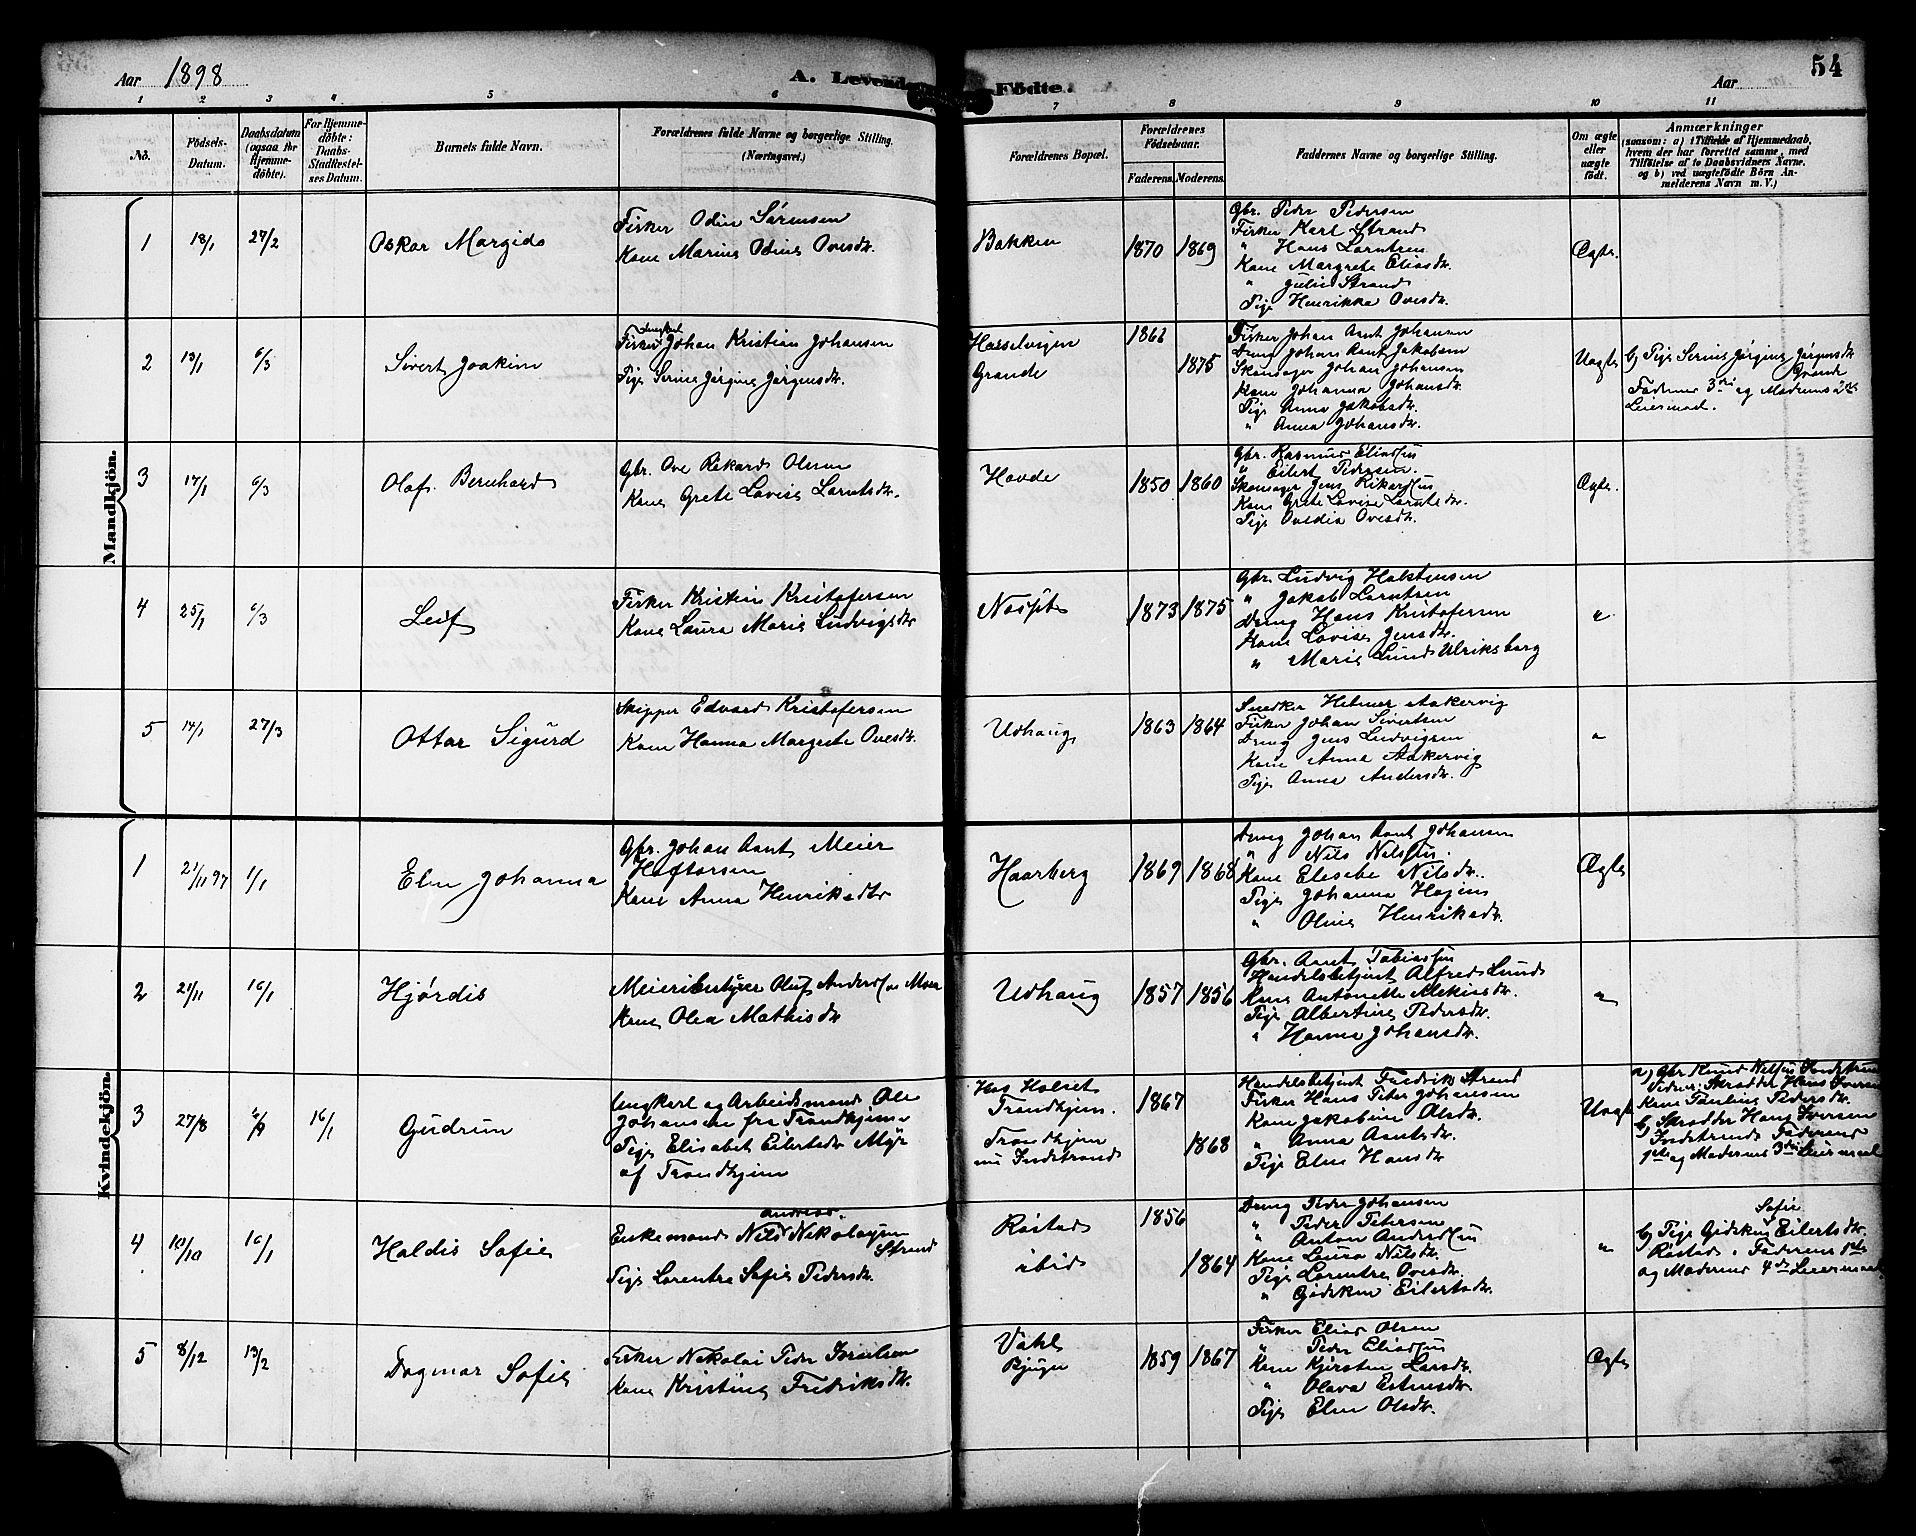 Aar 1898
A. Levende Fødte.
Aar
54
1 2 3 4 5 6 7 8 9 10 11
No.
Födsels-Datum.
Daabsdatum (ogsaa for Hjemmedöbte).
For Hjemmedöbte: Daabs-Stadfestelses Datum.
Barnets fulde Navn.
Forældrenes fulde Navne og borgerlige Stilling. (Næringsvei.)
Forældrenes Bopæl.
Forældrenes Födselsaar.
Faderens. Moderens.
Faddernes Navne og borgerlige Stilling.
Om ægte eller uægte født.
Anmærkninger
(saasom: a) i Tilfælde af Hjemmedaab, hvem der har forrettet samme, med Tilföielse af to Daabsvidners Navne. og b) ved uægtefödte Börn Anmelderens Navn m. V.)
Mandkjön.
1 18/1 27/2 Oskar Margido
Fisker Odin Sørensen
Kone Marine Odine Ovesdtr.
Bakken 1870 1869
Gbr. Peder Pedersen
Fisker Karl Strand
" Hans Larntsen
Kone Margrete Eliasdtr.
" Julie Strand
Pige Henrikka Ovesdtr.
Ægte.
2 13/1 6/3 Sivert Joakim
Fisker ungkarl Johan Kristian Johansen
Pige Serine Jørgine Jørgensdtr.
Hasselvigen
Grande
1875
Fisker Johan Arnt Johansen
Dreng Johan Arnt Jakobsen
Skomager Johan Johansen
Kone Johanna Johansdtr.
Pige Anna Jakobsdtr.
" Anna Johansdtr.
Uægte
b) Pige Serine Jørgine Jørgensdtr.
Grande
Faderens 3die og Moderens 2det
Leiermaal.
3 17/1 6/3 Olaf Bernhard
Gbr. Ove Rikard Olsen
Kone Grete Lovise Larntsdtr.
Hovde 1850 1860
Gbr. Rasmus Eliassen
" Eilert Pedersen.
Skomager Jens Rikardsen
Kone Grete Lovise Larntsdtr.
Pige Ovedia Ovesdtr.
Ægte.
4 25/1 6/3 Leif
Fisker Kristian Kristofersen
Kone Laura Marie Ludvigsdtr
1873 1875
Gbr. Ludvig Halstensen
" Jakob Larntsen
Dreng Hans Kristofersen
Kone Lovise Jensdtr.
" Marie Lund Ulriksborg
"
5 14/1 27/3 Ottar Sigurd
Skipper Edvard Kristofersen
Kone Hanna Margrete Ovesdtr.
Udhaug 1863 1864
Snedker Helmer Aakervig
Fisker Johan Sivertsen
Dreng Jens Ludvigsen
Kone Anna Aakervig
Pige Anna Andersdtr.
"
Kvindekjön.
1 21/11 97 1/1 Elen Johanna
Gbr. Johan Arnt Meier
Hoftorsen
Kone Anna Henriksdtr
Haarberg 1869 1868
Dreng Johan Arnt Johansen
" Nils Nilssen.
Kone Elesebe Nilsdtr.
Pige Johanna Hojem
" Oline Henriksdtr.
Ægte
2 21/11 16/1 Hjørdis
Meieribestyrer Oluf Anderssen Moen
Kone Olea Mathisdtr
Udhaug 1857 1856
Gbr. Arnt Tobiassen
Handelsbetjent Alfred Lund
Kone Antonette Mekiasdtr.
Pige Albertine Pedersdtr.
" Hanna Johansdtr.
"
3 27/8 16/1 Gudrun
Ungkarl og Arbeidsmand Ole
Johansen fra Trondhjem
Pige Elisabet Eilertsdtr Myr
af Trondhjem
Hos Holset
Trondhjem.
Trondhjem
nu Indstrand
1867
1868
Handelsbetjent Fredrik Strand
Fisker Hans Peter Johansen
Kone Jakobine Olsdtr.
" Anna Arntsdtr.
Pige Elen Hansdtr
Uægte
a) Gbr Knud Nilssen Indstrand
Vidner: Skrædder Hans Iversen
Kone Pauline Pedersdtr.
b) Skrædder Hans Iversen
Indstrand. Faderens
1ste og Moderens 3die Leiermaal
4 10/10 16/1 Haldis Sofie
Enkemand Nils Andreas. Nikolaysen
Strand
Pige Lorentse Sofie Pedersdtr.
Røstad
ibid
1856
1864
Dreng Peder Johansen
" Peder Petersen
" Anton Anderssen
Kone Laura Nilsdtr.
Pige Lorentse Ovesdtr.
" Gidsken Eilertsdtr.
"
b) Pige Gidsken Sofie Eilertsdtr.
Røstad. Faderens 1ste
og Moderens 4de Leiermaal
5 8/12 13/2 Dagmar Sofie
Fisker Nikolai Peder Israelsen
Kone Kristine Fredriksdtr.
Vahl
Bjugn
1859 1867
Fisker Elias Olsen
" Peder Eliassen
Kone Kjersten Larsdtr.
" Olava Estensdtr.
Pige Elen Olsdtr.
Ægte